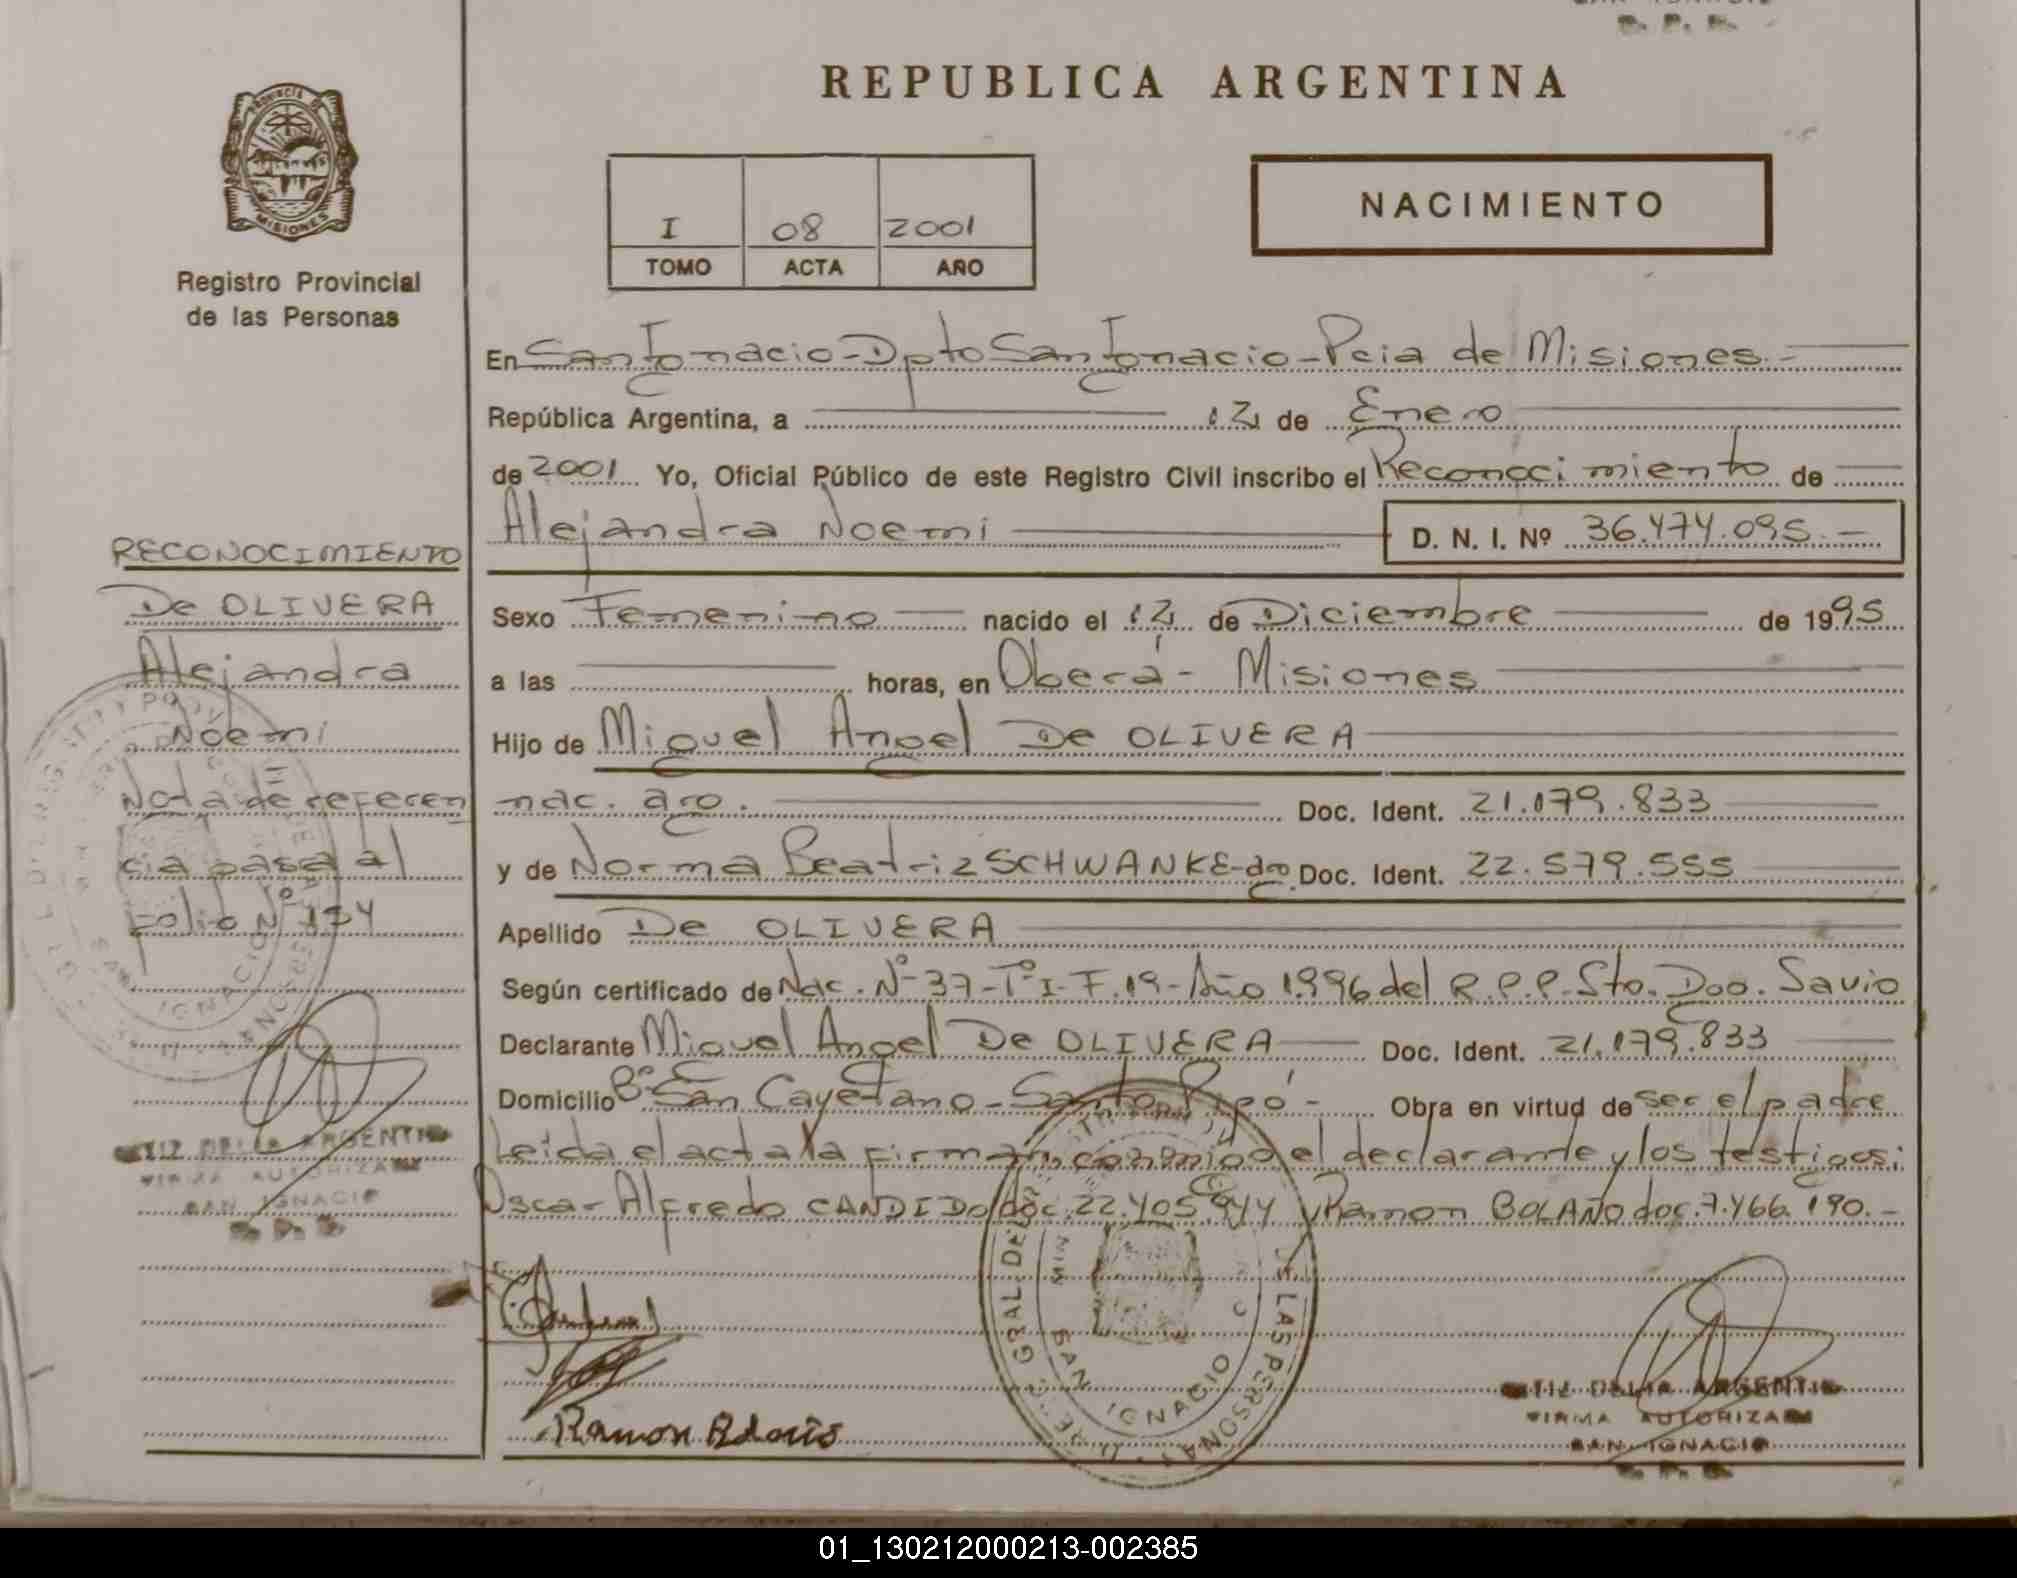 REPUBLICA ARGENTINA
PROVINCIA DE
MISIONES
Registro Provincial
de las Personas
I 08 2001
TOMO ACTA AÑO
NACIMIENTO
En San Ignacio - Dpto San Ignacio - Pcia de Misiones.-
República Argentina, a 12 de Enero
de 2001 Yo, Oficial Público de este Registro Civil inscribo el Reconocimiento de
Alejandra Noemi D. N. I. Nº 36.474.095.-
Sexo Femenino nacido el 12 de Diciembre de 1995
a las horas, en Oberá - Misiones
Hijo de Miguel Angel De OLIVERA
nac. arg. Doc. Ident. 21.179.833
y de Norma Beatriz SCHWANKE - arg. Doc. Ident. 22.579.555
Apellido De OLIVERA
Según certificado de Nac. Nº 37 - Tº I - F. 19 - Año 1.996 del R.P.P. Sto. Dgo. Savio
Declarante Miguel Angel De OLIVERA Doc. Ident. 21.179.833
Domicilio Bº San Cayetano - Santo Pipó - Obra en virtud de ser el padre
Leida el acta la firman conmigo el declarante y los testigos:
Oscar Alfredo CANDIDO doc. 22.405.944 y Ramon BOLAÑO doc. 7.466.190.-
RECONOCIMIENTO
De OLIVERA
Alejandra
Noemi
Nota de referen
cia pasa al
Folio Nº 154
DELIA ARGENTI
FIRMA AUTORIZADA
SAN IGNACIO
R. P. P.
GRAL DE LAS PERSONAS
SAN IGNACIO
Ramon
DELIA ARGENTI
FIRMA AUTORIZADA
SAN IGNACIO
R. P. P.
01_130212000213-002385